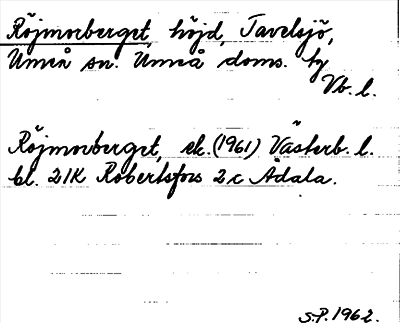 Röjmorberget, höjd, Tavelsjö,
Umeå sn. Umeå doms. hg
Vb. l.
Röjmorberget, ek. (1961) Västerb. l.
bl. 21K Robertsfors 2 c Ådala.
S.P. 1962.